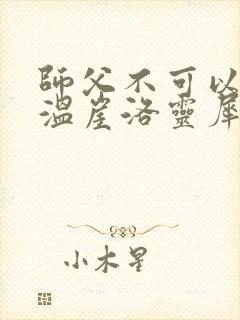 師父不可以
溫崖洛靈犀
小木星